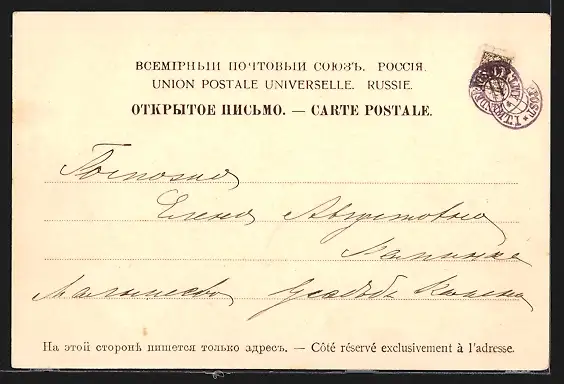 ВСЕМІРНЫЙ ПОЧТОВЫЙ СОЮЗЪ. РОССІЯ.
UNION POSTALE UNIVERSELLE. RUSSIE.
ОТКРЫТОЕ ПИСЬМО. — CARTE POSTALE.
Госпожа
Елена Августовна
Усадьба
На этой сторонѣ пишется только адресъ. — Côté réservé exclusivement à l'adresse.